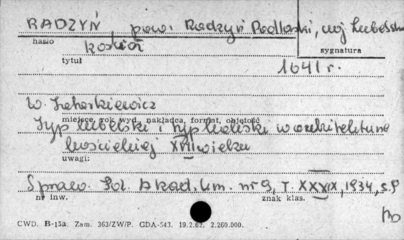 RADZYŃ pow. Radzyń Podlaski, woj Lubelskie
hasło
kościół
sygnatura
tytuł
1641 r.
W. Tatarkiewicz
miejsce, rok wyd., nakładca, format, objętość
Typ lubelski i typ kaliski w architekturze
kościelnej XVII wieku
uwagi:
Spraw. Pol. Akad. Um. nr 9, T. XXXIX, 1934, s. 9
nr inw.
znak klas.
CWD. B-15a. Zam. 363/ZW/P. GDA-547. 19.2.67. 2.260.000.